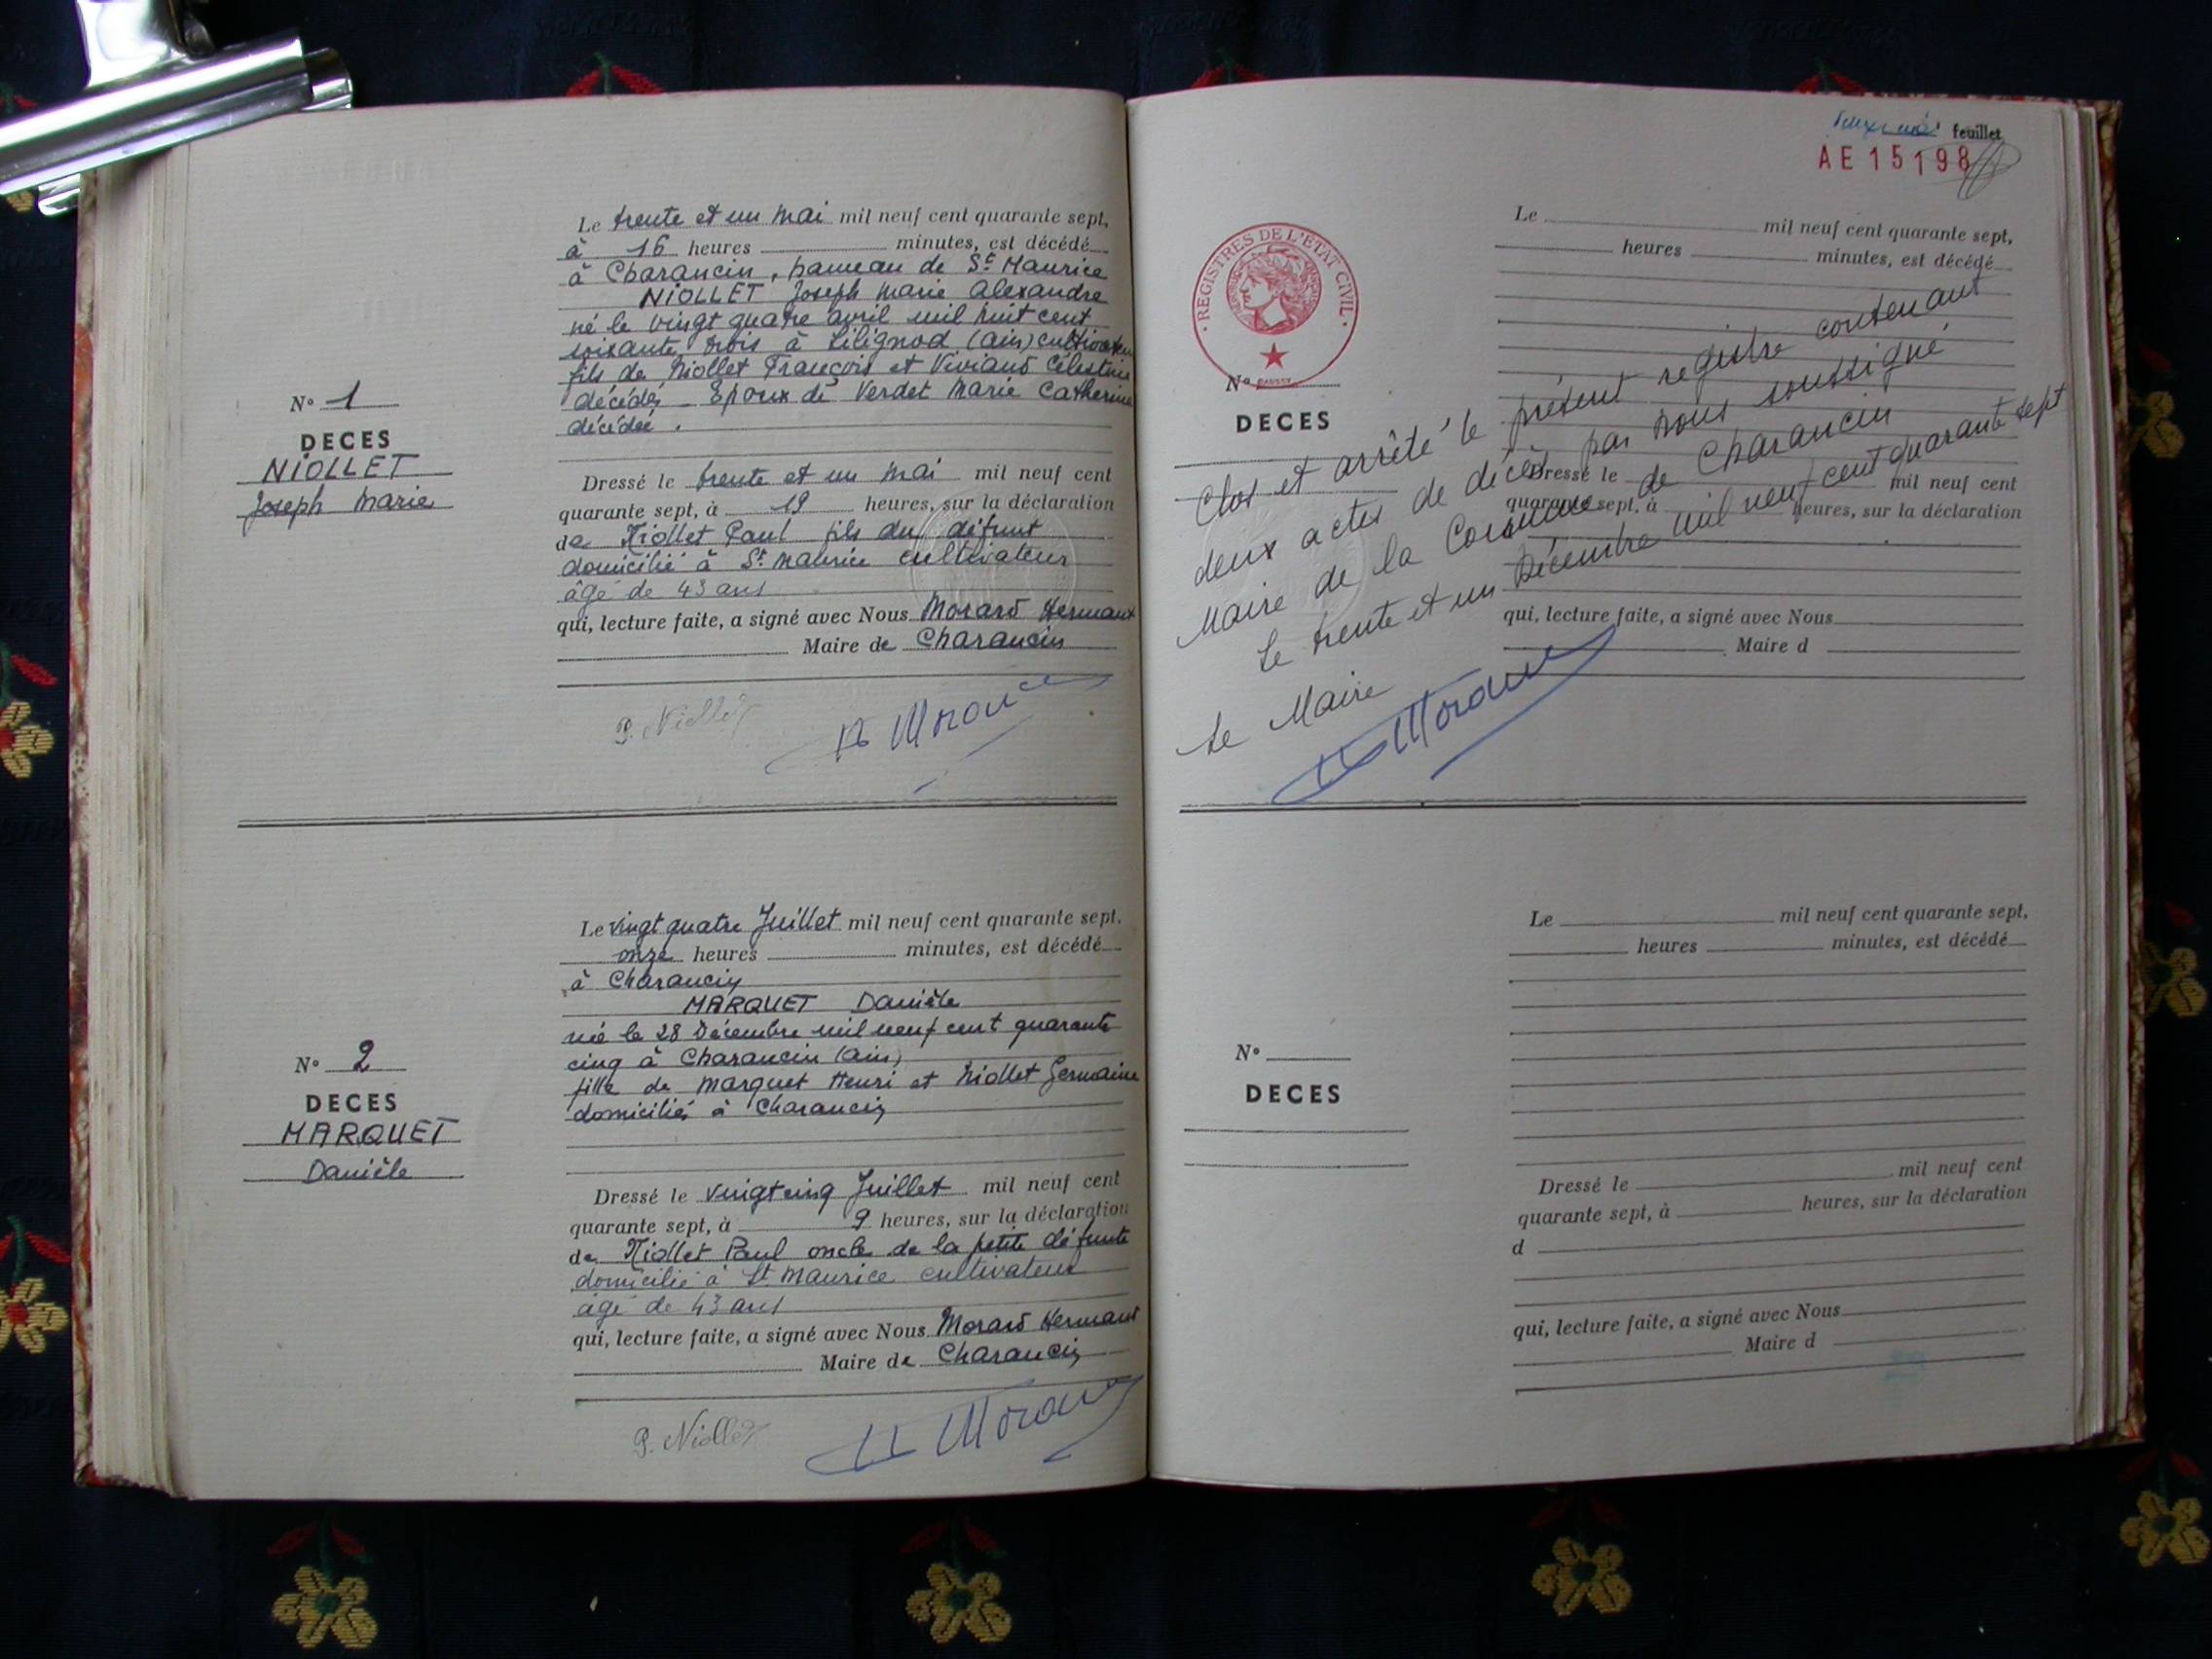 Le trente et un mai mil neuf cent quarante sept,
à 16 heures minutes, est décédé
à Charancin, hameau de St Maurice
NIOLLET Joseph Marie Alexandre
né le vingt quatre avril mil huit cent
soixante trois à Lilignod (ain) cultivateur
fils de Niollet François et Viviand Célestine
décédés Epoux de Verdet Marie Catherine
décédée.
N° 1
DECES
NIOLLET
Joseph Marie
Dressé le trente et un mai mil neuf cent
quarante sept, à 19 heures, sur la déclaration
de Niollet Paul fils du défunt
domicilié à St Maurice cultivateur
âgé de 43 ans
qui, lecture faite, a signé avec Nous Morard Hermant
Maire de Charancin
P. Niollet
H Morard
Le vingt quatre Juillet mil neuf cent quarante sept.
onze heures minutes, est décédé
à Charancin
MARQUET Danièle
née le 28 Décembre mil neuf cent quarante
cinq à Charancin (ain)
fille de Marquet Henri et Niollet Germaine
domiciliés à Charancin
N° 2
DECES
MARQUET
Danièle
Dressé le vingt cinq Juillet mil neuf cent
quarante sept, à 9 heures, sur la déclaration
de Niollet Paul oncle de la petite défunte
domicilié à St Maurice cultivateur
âgé de 43 ans
qui, lecture faite, a signé avec Nous Morard Hermant
Maire de Charancin
P. Niollet
H Morard
deuxième feuillet
AE 15198
REGISTRES DE L'ETAT CIVIL
Le mil neuf cent quarante sept,
heures minutes, est décédé
N°
DECES
Dressé le mil neuf cent
quarante sept, à heures, sur la déclaration
qui, lecture faite, a signé avec Nous
Maire d
Clos et arrêté le présent registre contenant
deux actes de décès par nous soussigné
Maire de la Commune de Charancin
Le trente et un Décembre mil neuf cent quarante sept
Le Maire
H Morard
Le mil neuf cent quarante sept,
heures minutes, est décédé
N°
DECES
Dressé le mil neuf cent
quarante sept, à heures, sur la déclaration
d
qui, lecture faite, a signé avec Nous
Maire d